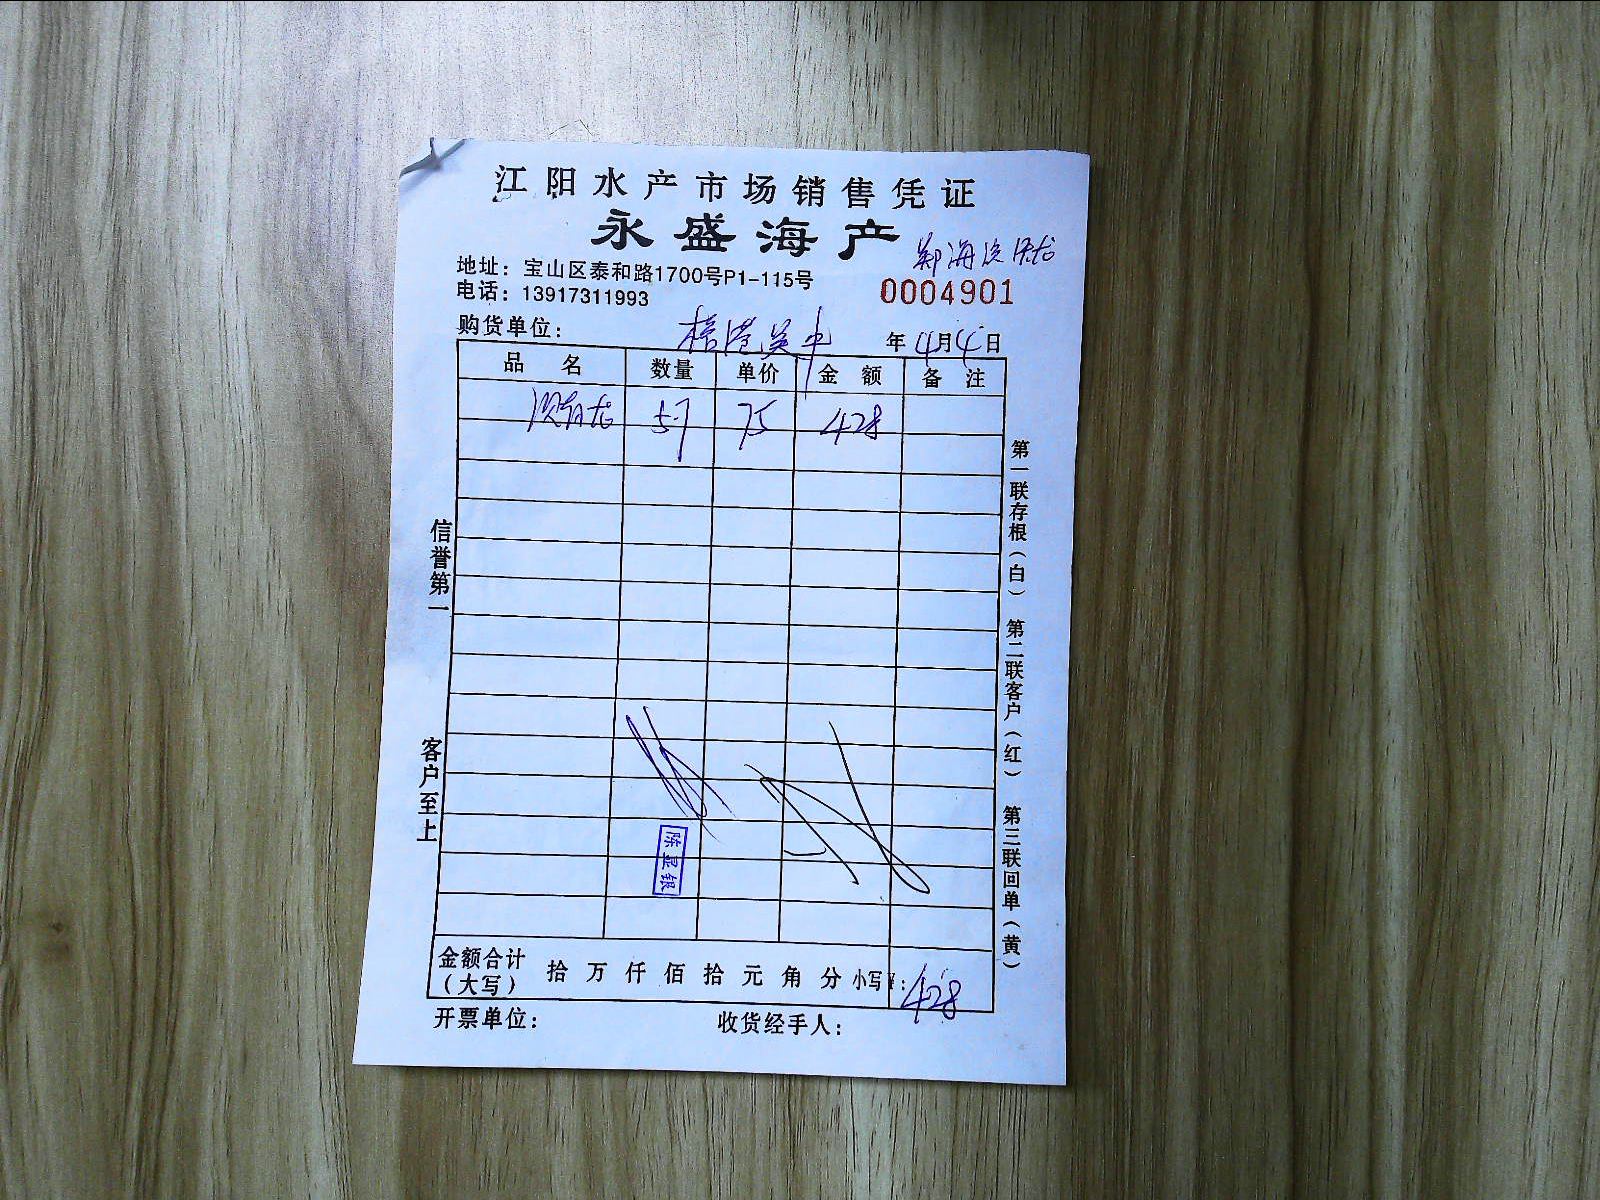 江阳水产市场销售凭证
永盛海产
地址：宝山区泰和路1700号P1-115号
电话：13917311993
0004901
购货单位： 年 4月4日
品 名 数量 单价 金 额 备 注
5.7 75 428
信誉第一
客户至上
第一联存根（白） 第二联客户（红） 第三联回单（黄）
陈显银
金额合计（大写） 拾 万 仟 佰 拾 元 角 分 小写¥：428
开票单位： 收货经手人：